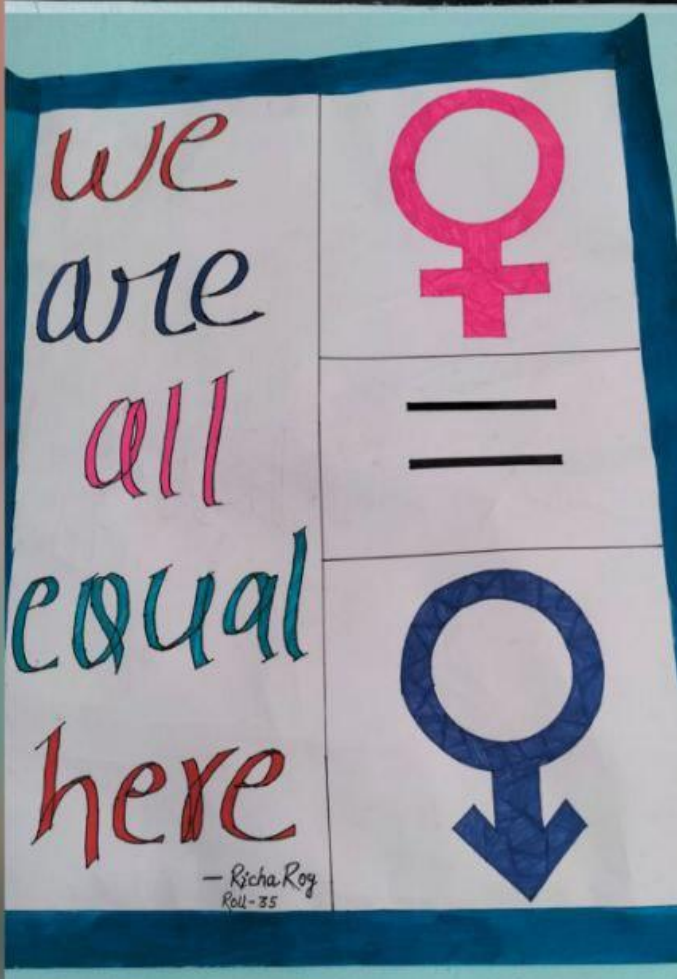 we
are
all
equal
here
=
— Richa Roy
Roll-35